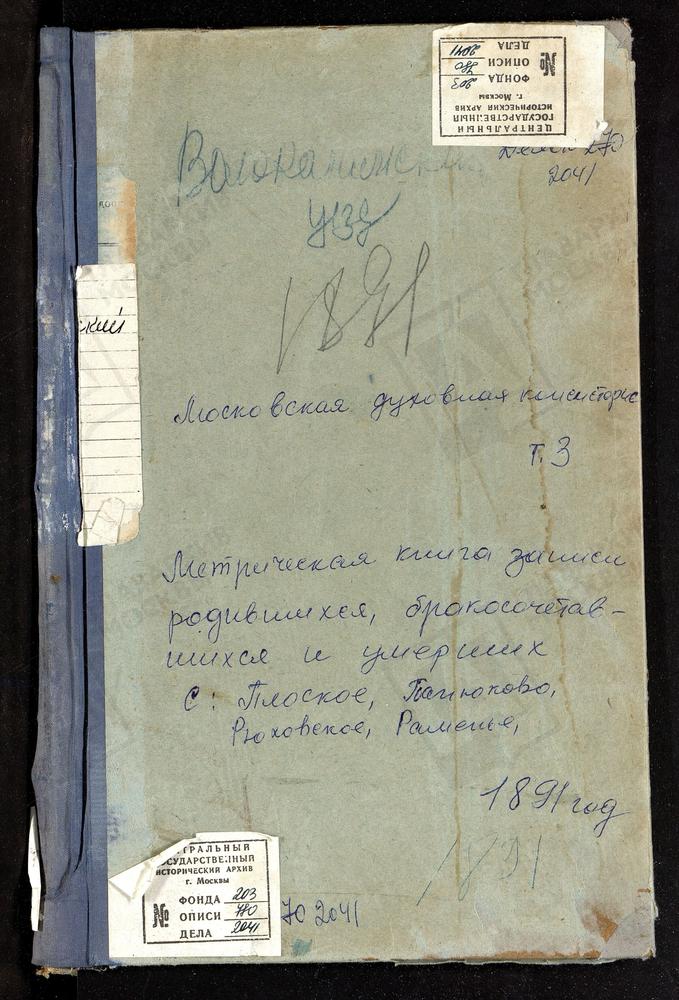 ЦЕНТРАЛЬНЫЙ
ГОСУДАРСТВЕННЫЙ
ИСТОРИЧЕСКИЙ АРХИВ
г. Москвы
ФОНДА 203
№ ОПИСИ 780
ДЕЛА 2041
2041
Волоколамский
уезд
1891
ский
Московская духовная консистория
т. 3
Метрическая книга записи
родившихся, бракосочетав-
шихся и умерших
С: Плоское, Панюково,
Рюховское, Раменье,
1891 год
1891
ТРАЛЬНЫЙ
ОСУДАРСТВЕННЫЙ
ИСТОРИЧЕСКИЙ АРХИВ
г. Москвы
ФОНДА 203
№ ОПИСИ 780
ДЕЛА 2041
70 2041